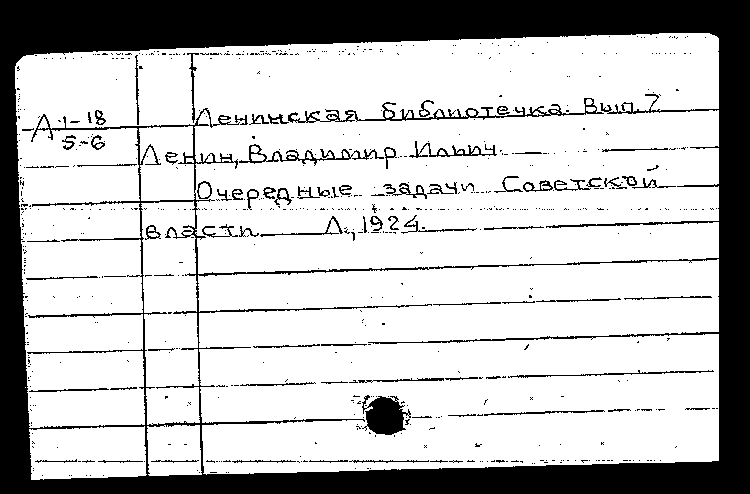 Ленинская библиотечка. Вып. 7
Л 1-18
5-6
Ленин, Владимир Ильич.
Очередные задачи Советской
власти Л., 1924.